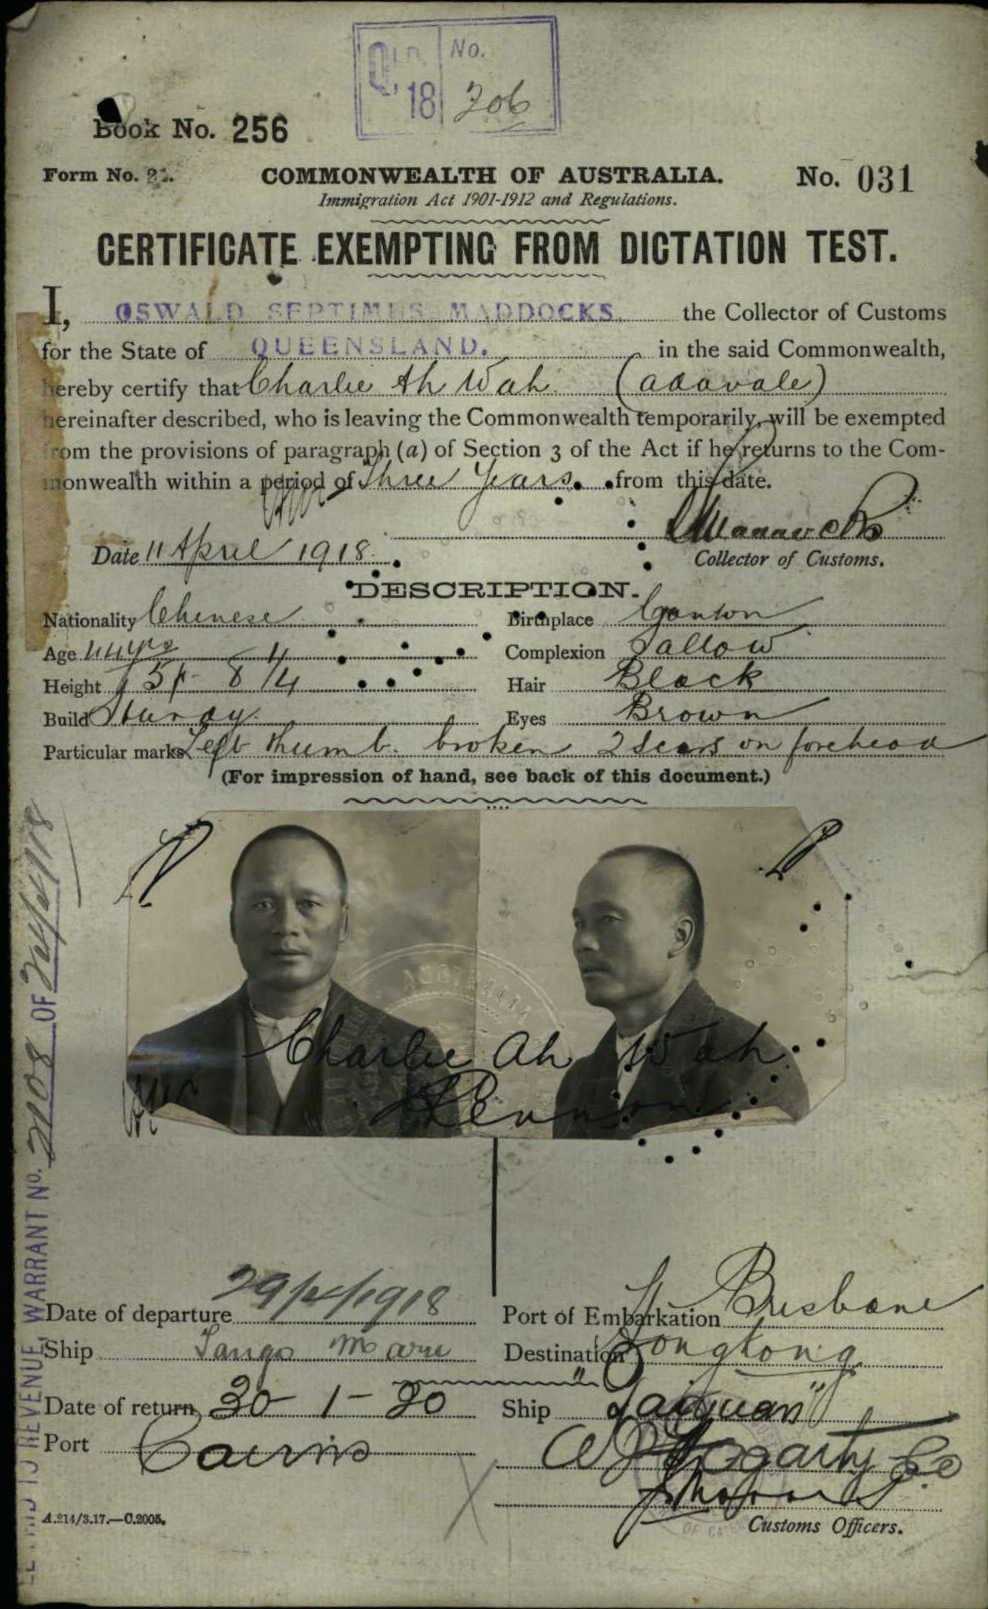 QLD. No.
18 206
Book No. 256
Form No. 21.
COMMONWEALTH OF AUSTRALIA.
No. 031
Immigration Act 1901-1912 and Regulations.
CERTIFICATE EXEMPTING FROM DICTATION TEST.
I, OSWALD SEPTIMUS MADDOCKS. the Collector of Customs
for the State of QUEENSLAND. in the said Commonwealth,
hereby certify that Charlie Ah Wah (Adavale)
hereinafter described, who is leaving the Commonwealth temporarily, will be exempted
from the provisions of paragraph (a) of Section 3 of the Act if he returns to the Com-
monwealth within a period of Three Years from this date.
Date 11 April 1918.
Collector of Customs.
DESCRIPTION.
Nationality Chinese Birthplace Canton
Age 44 yrs Complexion Sallow
Height 5ft 8 1/4 Hair Black
Build Sturdy. Eyes Brown
Particular marks Left thumb broken 2 Scars on forehead
(For impression of hand, see back of this document.)
Charlie Ah Wah
Date of departure 29/4/1918 Port of Embarkation Brisbane
Ship Tango Maru Destination Hongkong
Date of return 30-1-20 Ship "Taiyuan"
Port Cairns
Fogarty
Customs Officers.
A.214/3.17.—C.2005.
TO REVENUE, WARRANT No. 2108 OF